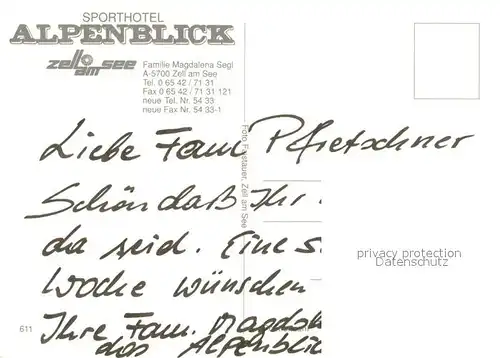 SPORTHOTEL
ALPENBLICK
Zell am see
Familie Magdalena Segl
A-5700 Zell am See
Tel. 0 65 42 / 71 31
Fax 0 65 42 / 71 31 121
neue Tel. Nr. 54 33
neue Fax Nr. 54 33-1
Foto Faistauer, Zell am See
Liebe Fam Pfretschner
Schön daß Ihr
da seid. Eine s
Woche wünschen
Ihre Fam. Magdal
das Alpenblic
privacy protection
Datenschutz
611